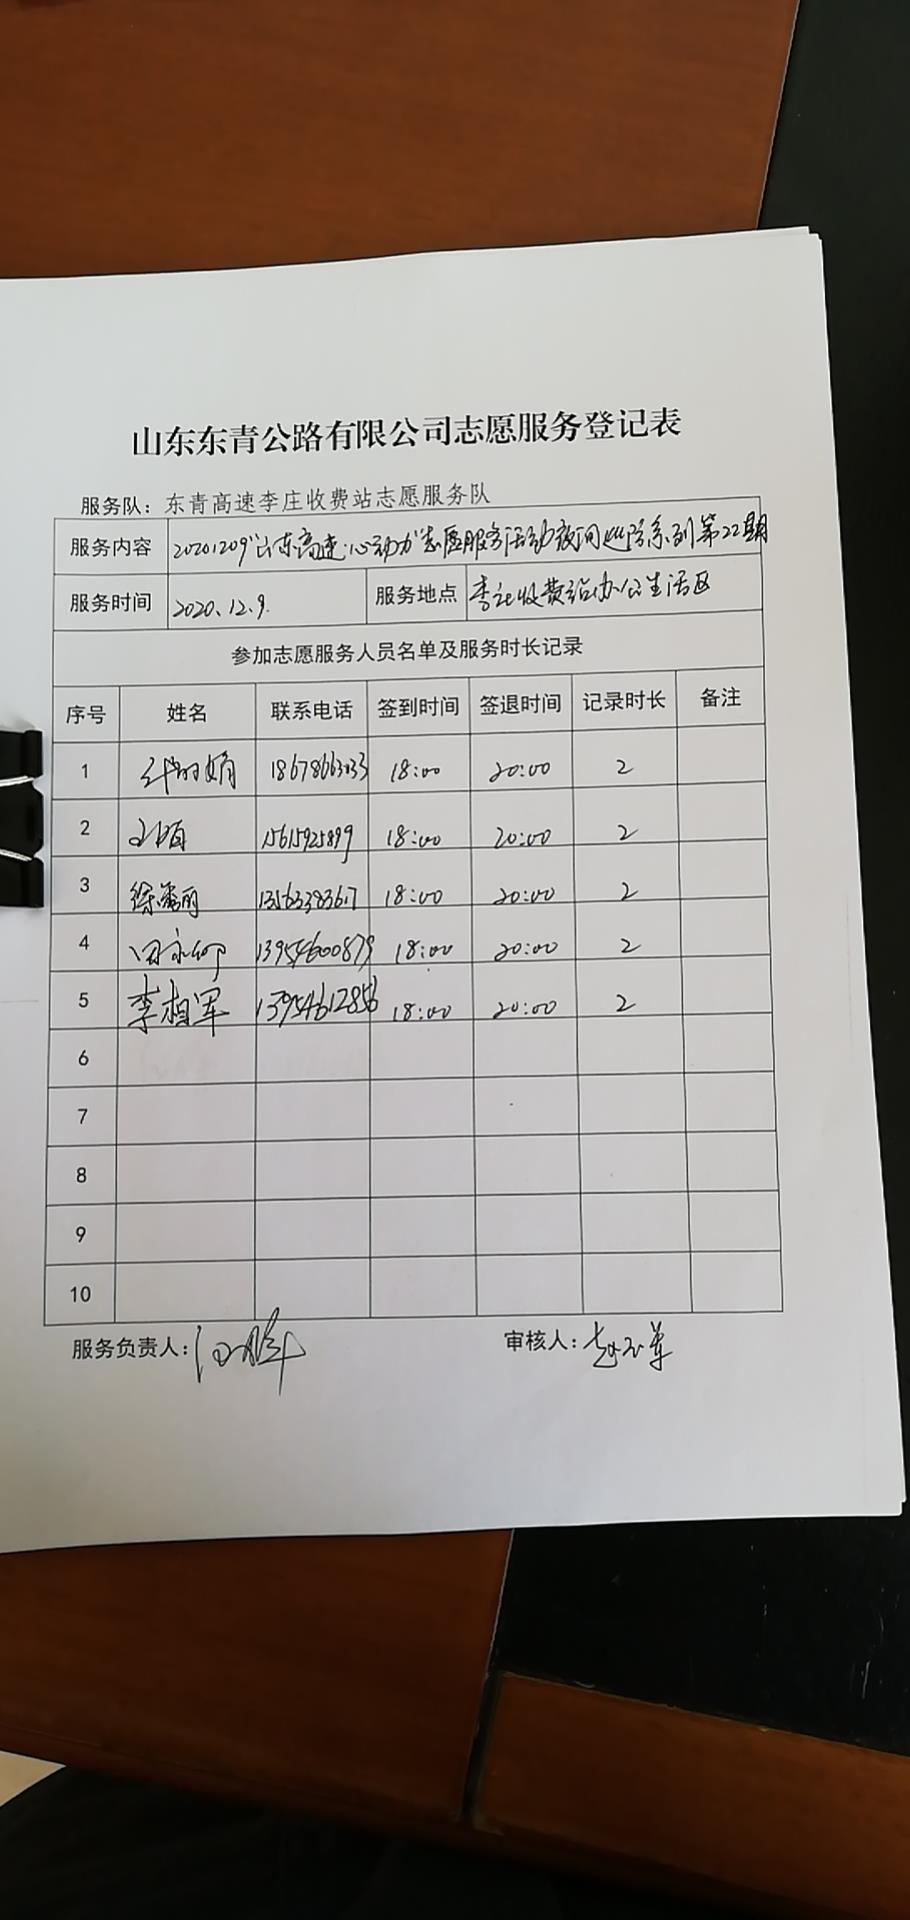 山东东青公路有限公司志愿服务登记表
服务队：东青高速李庄收费站志愿服务队
服务内容 20201209"山东高速·心动力"志愿服务活动夜间巡逻系列第22期
服务时间 2020.12.9. 服务地点 李庄收费站办公生活区
参加志愿服务人员名单及服务时长记录
序号 姓名 联系电话 签到时间 签退时间 记录时长 备注
1 18:00 20:00 2
2 15615925899 18:00 20:00 2
3 13563383617 18:00 20:00 2
4 13954600879 18:00 20:00 2
5 李相军 13954612856 18:00 20:00 2
6
7
8
9
10
服务负责人： 审核人：